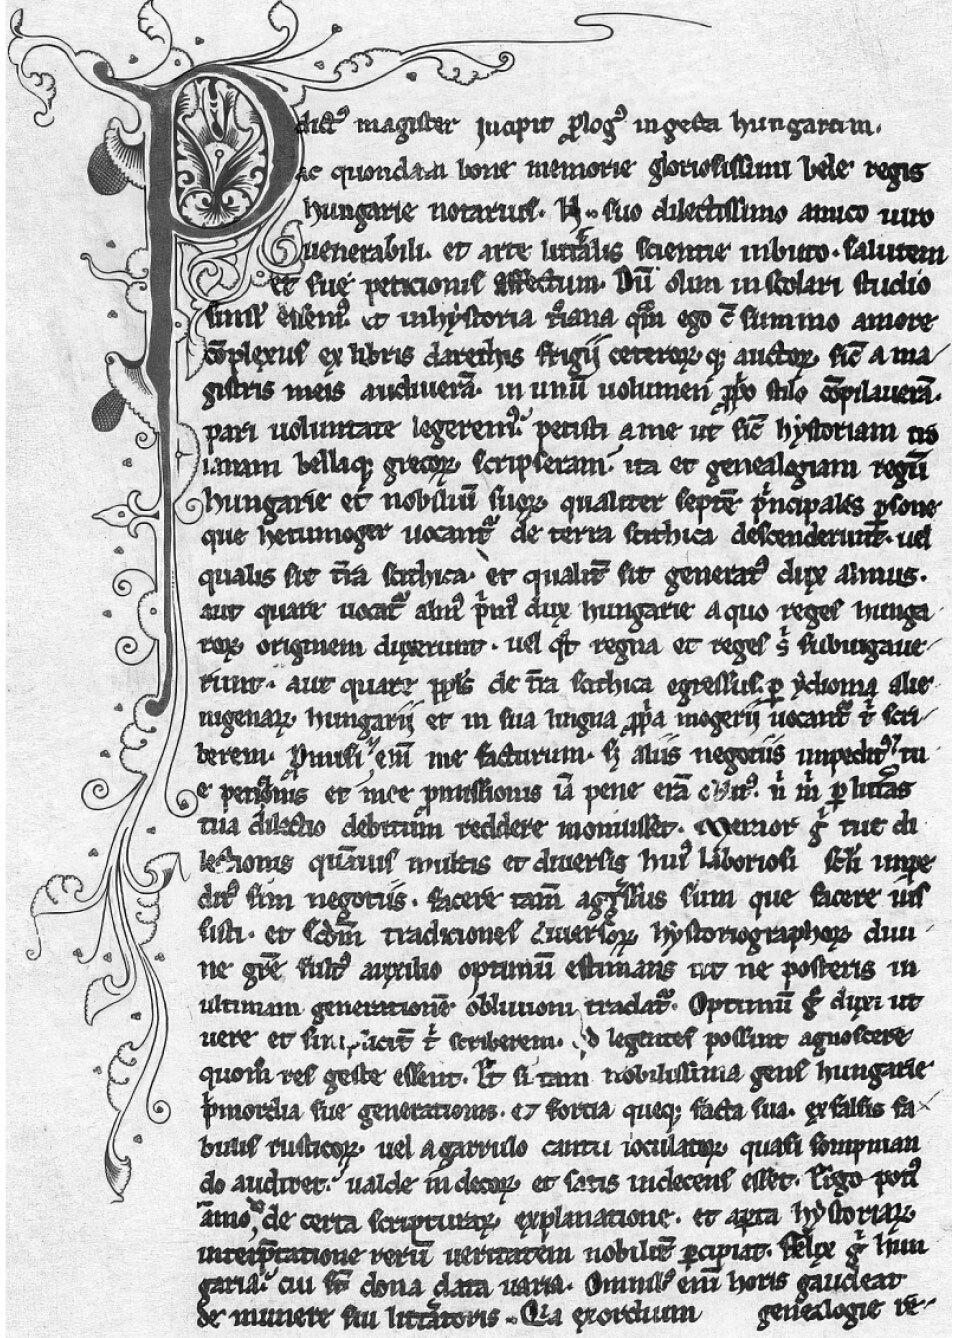 P dict᷒ magister Incipit ꝓlog᷒ in gesta hungarum.
ac quondam bone memorie gloriosissimi bele regis
hungarie notarius. N. suo dilectissimo amico uiro
uenerabili. et arte litt̾alis scientie inbuto. salutem
et sue peticionis effectum. Dū olim in scolari studio
simul essem᷒. et in hystoria t̾iana qͣm ego cū summo amore
cōplexus ex libris darethis frigii ceteroꝝ qꝫ auctoꝝ. sic̄ a ma
gistris meis audiuerā. in unū uolumen ꝓp̱o stilo cōpilauerā.
pari uoluntate legerem᷒. petisti a me ut sic̄ hystoriam tro
ianam bellaqꝫ grecoꝝ scripseram. ita et genealogiam regū
hungarie et nobiliū suoꝝ. qualiter septē p̾ncipales ꝑsone
que hetumoger uocant᷑ de terra scithica descenderunt. uel
qualis sit t̄ra scithica. et qualit̄ sit generat᷒ dux almus.
aut quare uocat᷑ alm᷒ p̾m᷒ dux hungarie a quo reges hunga
roꝝ originem duxerunt. uel qͦt regna et reges s̾ subiugaue
runt. aut quare ppl̄s de t̄ra scithica egressus. ꝑ ydioma alie
nigenaꝝ hungarii et in sua lingua ꝓp̱a mogerii uocant᷑ t̾ scri
berem. Promisi enī me facturum. sꝫ aliis negotiis impedit᷒. tu
e petic̄onis et mee p̱missionis iā pene erā oblit᷒. n̾ m̾ ꝑ litt̄as
tua dilectio debitum reddere monuisset. Memor g̾ tue di
lectionis quāuis multis et diuersis hui᷒ laboriosi sc̄li impe
dit᷒ sim negotiis. facere tam̄ aggressus sum que facere iuss
isti. et sc̄dm tradiciones diuersoꝝ hystoriographoꝝ diui
ne gr̄e fult᷒ auxilio optimū estimans ut ne posteris in
ultimam generationē obliuioni tradat᷑. Optimū g̾ duxi ut
uere et simplicit̄ t̾ scriberem. qͦd legentes possint agnoscere
quomͦ res geste essent. Et si tam nobilissima gens hungarie
p̾mordia sue generationis. et fortia queqꝫ facta sua. ex falsis fa
bulis rusticoꝝ. uel a garrulo cantu ioculatoꝝ quasi sompnian
do audiret. ualde indecoꝝ et satis indecens esset. Ergo poti᷒
āmodo de certa scripturaꝝ explanatione. et aperta hystoriaꝝ
interp̱tatione rerū ueritatem nobilit̄ ꝑcipiat. Felix g̾ hun
garia. cui sūt dona data uaria. Omnib᷒ enī horis gaudeat
de munere sui litt̄atoris. Quia exordium genealogie re